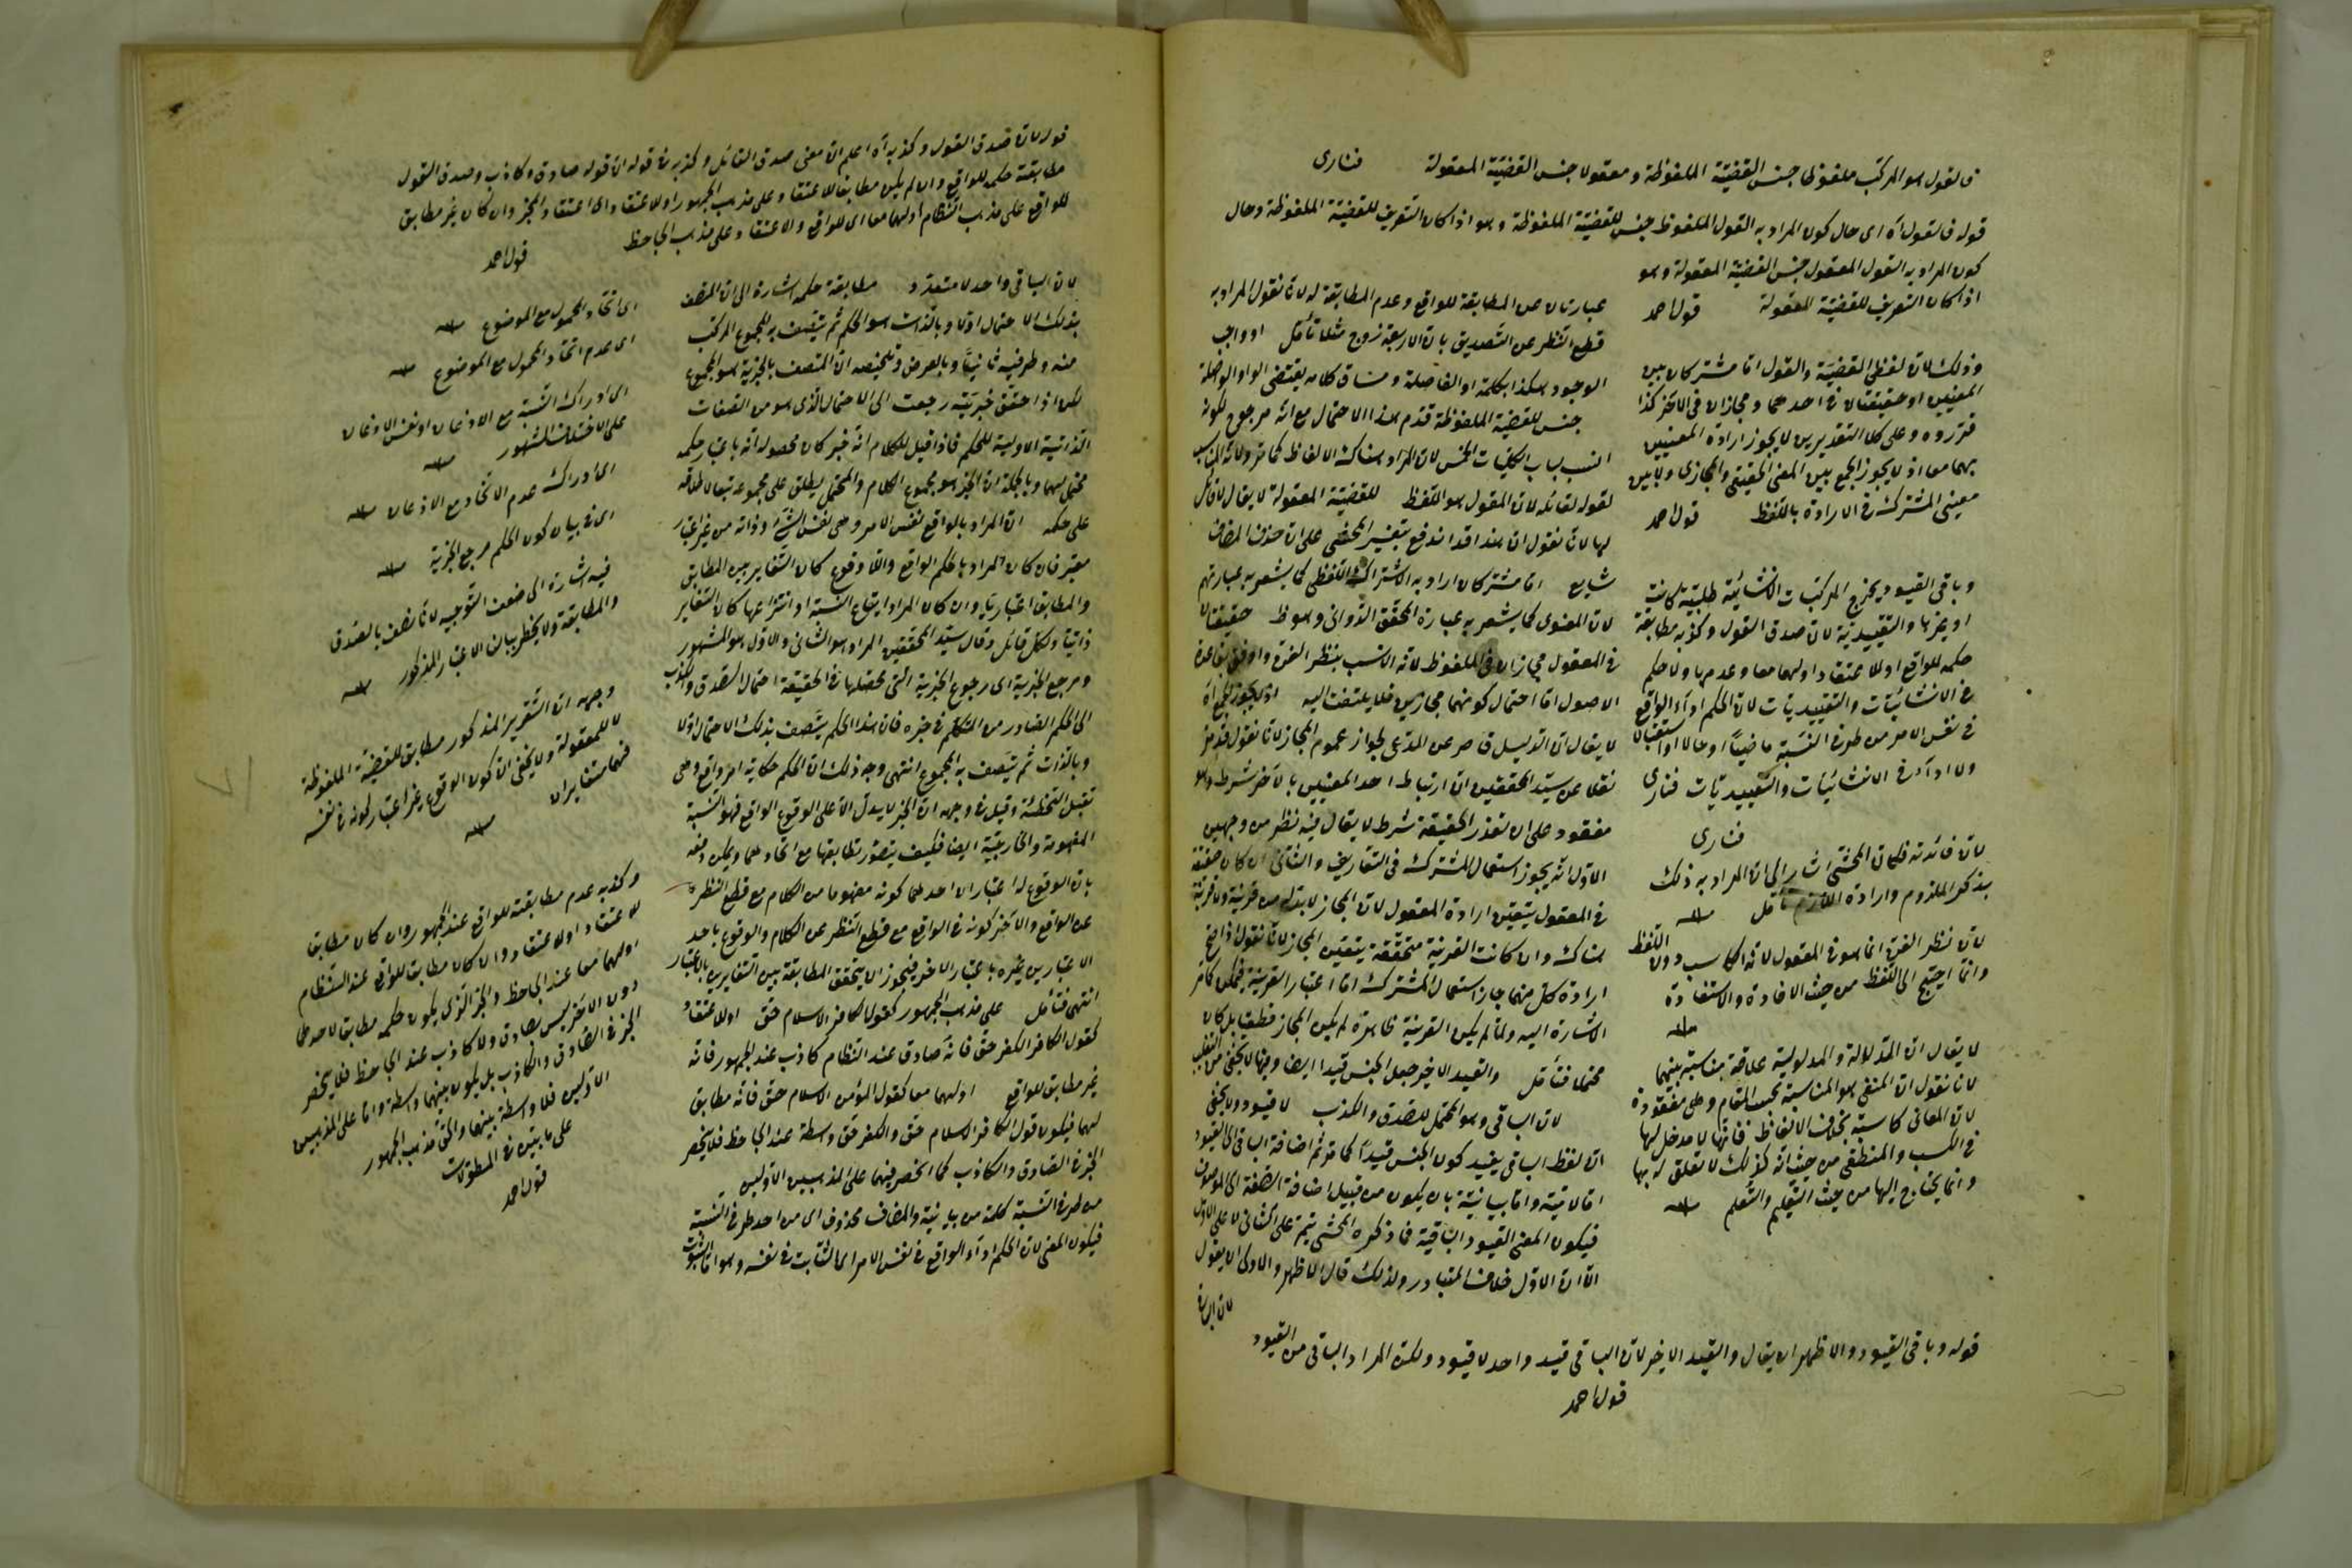 فالقول هو المركب ملفوظا جنس القضيّة الملفوظة ومعقولا جنس القضيّة المعقولة فنارى
قوله فالقول آه اى حال كون المراد به القول الملفوظ جنس للقضيّة الملفوظة وهو اذا كان التعريف للقضيّة الملفوظة وحال
كون المراد به القول المعقول جنس القضيّة المعقولة وهو
اذا كان التعريف للقضيّة المعقولة قول احمد
وذلك لان لفظى القضيّة والقول اما مشتركان بين
المعنيين او حقيقتان فى احدهما ومجازان فى الآخر كذا
قرّروه وعلى كلا التقديرين لا يجوز ارادة المعنيين
بهما معا اذ لا يجوز الجمع بين المعنى الحقيقى والمجازى ولا بين
معنيى المشترك فى الارادة باللفظ قول احمد
وباقى القيود يخرج المركبات الانشائيّة طلبيّة كانت
او غيرها والتقييديّة لان صدق القول وكذبه مطابقة
حكمه للواقع او للاعتقاد او لهما معا وعدمها ولا حكم
فى الانشائيّات والتقييديّات لان الحكم اداء الواقع
فى نفس الامر من طرف النسبة ماضيا او حالا او استقبالا
ولا اداء فى الانشائيّات والتقييديّات فنارى
فنارى
لان فائدته فلمان المحشى اشار الى ان المراد به ذلك
بذكر الملزوم وارادة اللازم تأمل منه
لان نظر الفن انما هو فى المعقول لانه الكاسب دون اللفظ
وانما احتيج الى اللفظ من حيث الافادة والاستفادة
منه
لا يقال ان الدلالة والمدلولية علاقة مناسبة بينهما
لانا نقول ان المنفى هو المناسبة بحسب المقام وهى مفقودة
لان المعانى كاسبة بخلاف الالفاظ فانها لا مدخل لها
فى الكسب والمنطقى من حيث انه كذلك لا تعلق له بها
وانما يحتاج اليها من حيث التعليم والتعلم منه
عبارتان عن المطابقة للواقع وعدم المطابقة له لانا نقول المراد به
قطع النظر عن التصديق بان الاربعة زوج مثلا تأمل او واجب
الوجود هكذا بكلمة او الفاصلة ومساق كلامه يقتضى الواو الواصلة
جنس للقضية الملفوظة قدم هذا الاحتمال مع انه مرجوح لكونه
انسب بباب الكليات الخمس لان المراد هناك الالفاظ كما مر ولانه المناسب
لقوله لقائله لان المقول هو اللفظ للقضيّة المعقولة لا يقال لا قائل
لها لانا نقول ان هذا قد اندفع بتفسير المحشى على ان حذف المضاف
شايع اما مشتركان اراد به الاشتراك اللفظى كما يشعر به عبارتهم
لان المعنوى كما يشعر به عبارة المحقق الدوانى وهو ظ حقيقتان
فى المعقول مجازان فى الملفوظ لانه الانسب بنظر الفن واوفق بقاعدة
الاصول اما احتمال كونهما مجازين فلا يلتفت اليه اذ لا يجوز الجمع آه
لا يقال ان الدليل قاصر عن المدعى لجواز عموم المجاز لانا نقول قد مر
نقلا عن سيد المحققين ان ارتباط احد المعنيين بالآخر شرط وهو
مفقود على ان تعذر الحقيقة شرط لا يقال فيه نظر من وجهين
الاول انه يجوز استعمال المشترك فى التعاريف والثانى ان كان حقيقة
فى المعقول يتعين ارادة المعقول لان المجاز لا بد له من قرينة ولا قرينة
هناك وان كانت القرينة متحققة يتعين المجاز لانا نقول اذا صح
ارادة كل منهما جاز استعمال المشترك اما اعتبار القرينة فيمكن كما مر
الاشارة اليه ولما لم يكن القرينة ظاهرة لم يكن المجاز قطعيا بل كان
محتملا فتأمل والقيد الاخير جعل الجنس قيدا ايضا وفيها لا يخفى من التغليب
لان الباقى وهو المحتمل للصدق والكذب لا قيود ولا يخفى
ان لفظ الباقى يفيد كون الجنس قيدا كما مر ثم اضافة الباقى الى القيود
اما لامية واما بيانية بان يكون من قبيل اضافة الصفة الى الموصوف
فيكون المعنى القيود الباقية فما ذكره المحشى يتم على الثانى لا على الاول
الا ان الاول خلاف المتبادر ولذلك قال الاظهر والاولى ان يقول
لان الباقى
قوله وباقى القيود والاظهر ان يقال والقيد الاخير لان الباقى قيد واحد لا قيود ولكن المراد الباقى من القيود
قول احمد
قوله لان صدق القول وكذبه آه اعلم ان معنى صدق القائل وكذبه فى قوله ان قوله صادق وكاذب وصدق القول
مطابقة حكمه للواقع وان لم يكن مطابقا للاعتقاد وعلى مذهب الجمهور او للاعتقاد اى اعتقاد المخبر وان كان غير مطابق
للواقع على مذهب النظام او لهما معا اى للواقع والاعتقاد وعلى مذهب الجاحظ
قول احمد
لان الباقى واحد لا متعدد مطابقة حكمه اشارة الى ان المتصف
بذلك الاحتمال اولا وبالذات هو الحكم ثم يتصف به المجموع المركب
منه وطرفيه ثانيا وبالعرض وتلخيصه ان المتصف بالخبرية هو المجموع
لكن اذا حقق خبريته رجعت الى الاحتمال الذى هو من الصفات
الذاتية الاولية للحكم فاذا قيل للكلام انه خبر كان محصوله انه باعتبار حكمه
محتمل لهما وبالجملة ان الخبر هو مجموع الكلام والمحتمل يطلق على مجموعه تبعا لاطلاقه
على حكمه ان المراد بالواقع نفس الامر وهى نفس الشئ وذاته من غير اعتبار
معتبر فان كان المراد بالحكم الواقع واللاوقوع كان التغاير بين المطابق
والمطابق اعتباريا وان كان المراد ايقاع النسبة او انتزاعها كان التغاير
ذاتيا ولكل قائل وقال سيد المحققين المراد هو الثانى والاول هو المشهور
ومرجع الخبرية اى رجوع الخبرية التى محصلها فى الحقيقة احتمال الصدق والكذب
الى الحكم الصادر من المتكلم فى خبره فان هذا الحكم يتصف بذلك الاحتمال اولا
وبالذات ثم يتصف به المجموع انتهى وجه ذلك ان الحكم حكاية امر واقع وهى
تقبل التخطئة وقيل فى وجهه ان الخبر لا يدل الا على الوقوع الواقع فهو النسبة
المفهومة والخارجية ايضا فكيف يتصور تطابقهما مع اتحادهما ويمكن دفعه
بان الوقوع له اعتباران احدهما كونه مفهوما من الكلام مع قطع النظر
عن الواقع والآخر كونه فى الواقع مع قطع النظر عن الكلام والوقوع باحد
الاعتبارين غيره باعتبار الآخر فيجوز ان يتحقق المطابقة بين المتغايرين بالاعتبار
انتهى فتأمل على مذهب الجمهور كقول الكافر الاسلام حق او للاعتقاد
كقول الكافر الكفر حق فانه صادق عند النظام كاذب عند الجمهور فانه
غير مطابق للواقع او لهما معا كقول المؤمن الاسلام حق فانه مطابق
لهما فيكون قول الكافر الاسلام حق والكفر حق واسطة عند الجاحظ فلا ينحصر
الخبر فى الصادق والكاذب كما انحصر فيهما على المذهبين الاولين
من طرف النسبة كلمة من بيانية والمضاف محذوف اى من احد طرفى النسبة
فيكون المعنى لان الحكم اداء الواقع فى نفس الامر اى الثابت فى نفسه وهو اما الثبوت
اى اتحاد المحمول مع الموضوع منه
اى عدم اتحاد المحمول مع الموضوع منه
اى ادراك النسبة مع الاذعان او نفس الاذعان
على الاختلاف المشهور منه
اى ادراك عدم الاتحاد مع الاذعان منه
اى فى بيان كون الحكم مرجع الخبرية منه
فيه اشارة الى ضعف التوجيه لانا نصف بالصدق
والمطابقة ولا يخطر ببالنا الاعتبار المذكور منه
وجهه ان التقرير المذكور مطابق للقضية الملفوظة
لا للمعقولة ولا يخفى ان كون الوقوع غير اعتبار كونه فى نفسه
فهما متغايران
منه
وكذبه عدم مطابقته للواقع عند الجمهور وان كان مطابق
للاعتقاد او للاعتقاد وان كان مطابق للواقع عند النظام
او لهما معا عند الجاحظ والخبر الذى يكون حكمه مطابق لاحدهما
دون الآخر ليس بصادق ولا كاذب عند الجاحظ فلا ينحصر
الخبر فى الصادق والكاذب بل يكون بينهما واسطة واما على المذهبين
الاولين فلا واسطة بينهما والحق مذهب الجمهور
على ما بين فى المطولات
قول احمد